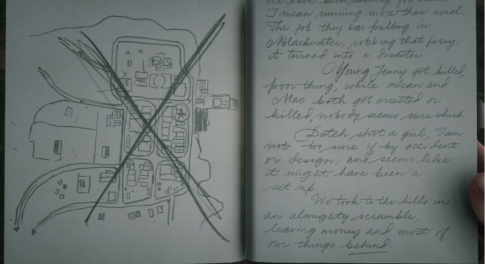 I mean running more than usual.
The job they was pulling in
Blackwater, robbing that ferry,
it turned into a disaster.
Young Jenny got killed,
poor thing, while Sean and
Mac both got arrested or
killed, nobody seems sure which.
Dutch shot a girl, I am
not too sure if by accident
or design, and seems like
it might have been a
set up.
We took to the hills in
an almighty scramble,
leaving money and most of
our things behind.